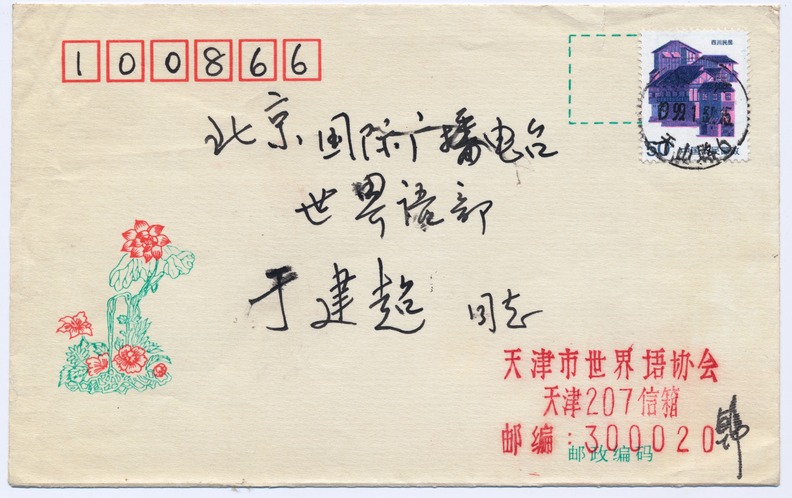 100866
四川民居
50
北京国际广播电台
世界语部
于建超 同志
天津市世界语协会
天津207信箱
邮编:300020
邮政编码